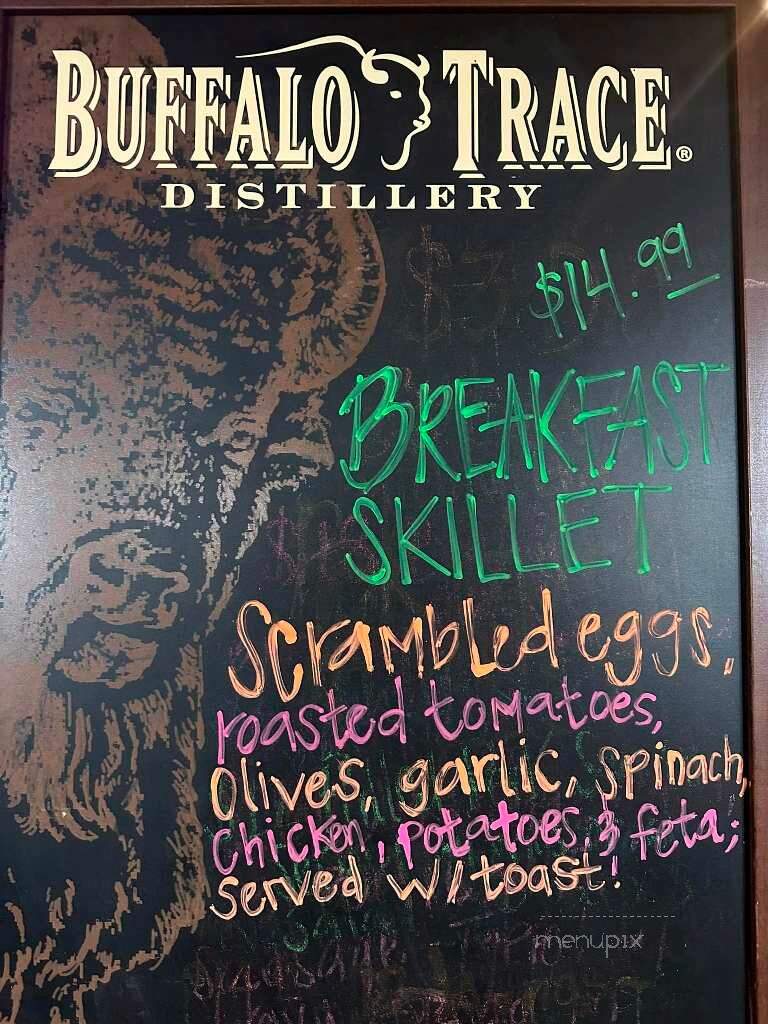 BUFFALO TRACE®
DISTILLERY
$14.99
BREAKFAST
SKILLET
Scrambled eggs,
roasted tomatoes,
Olives, garlic, Spinach,
Chicken, potatoes, & feta;
Served w/ toast!
menupix